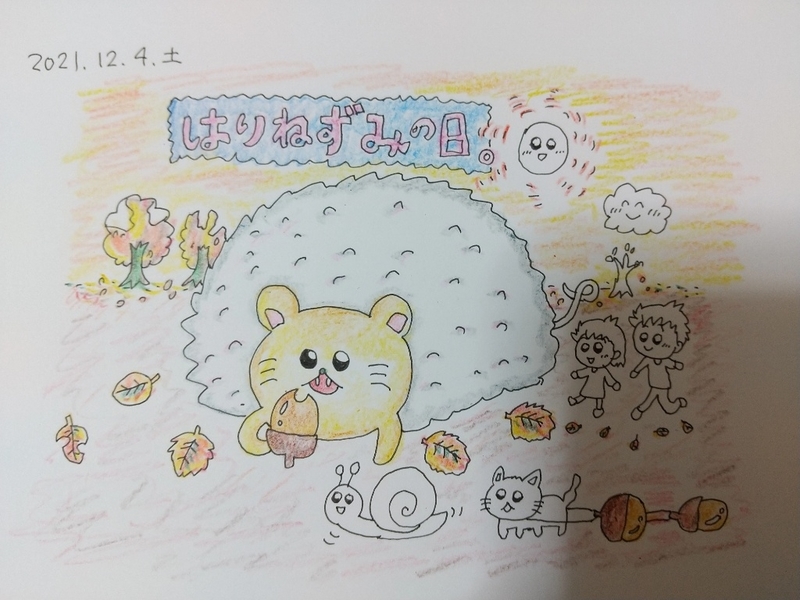 2021.12.4.土
はりねずみの日。